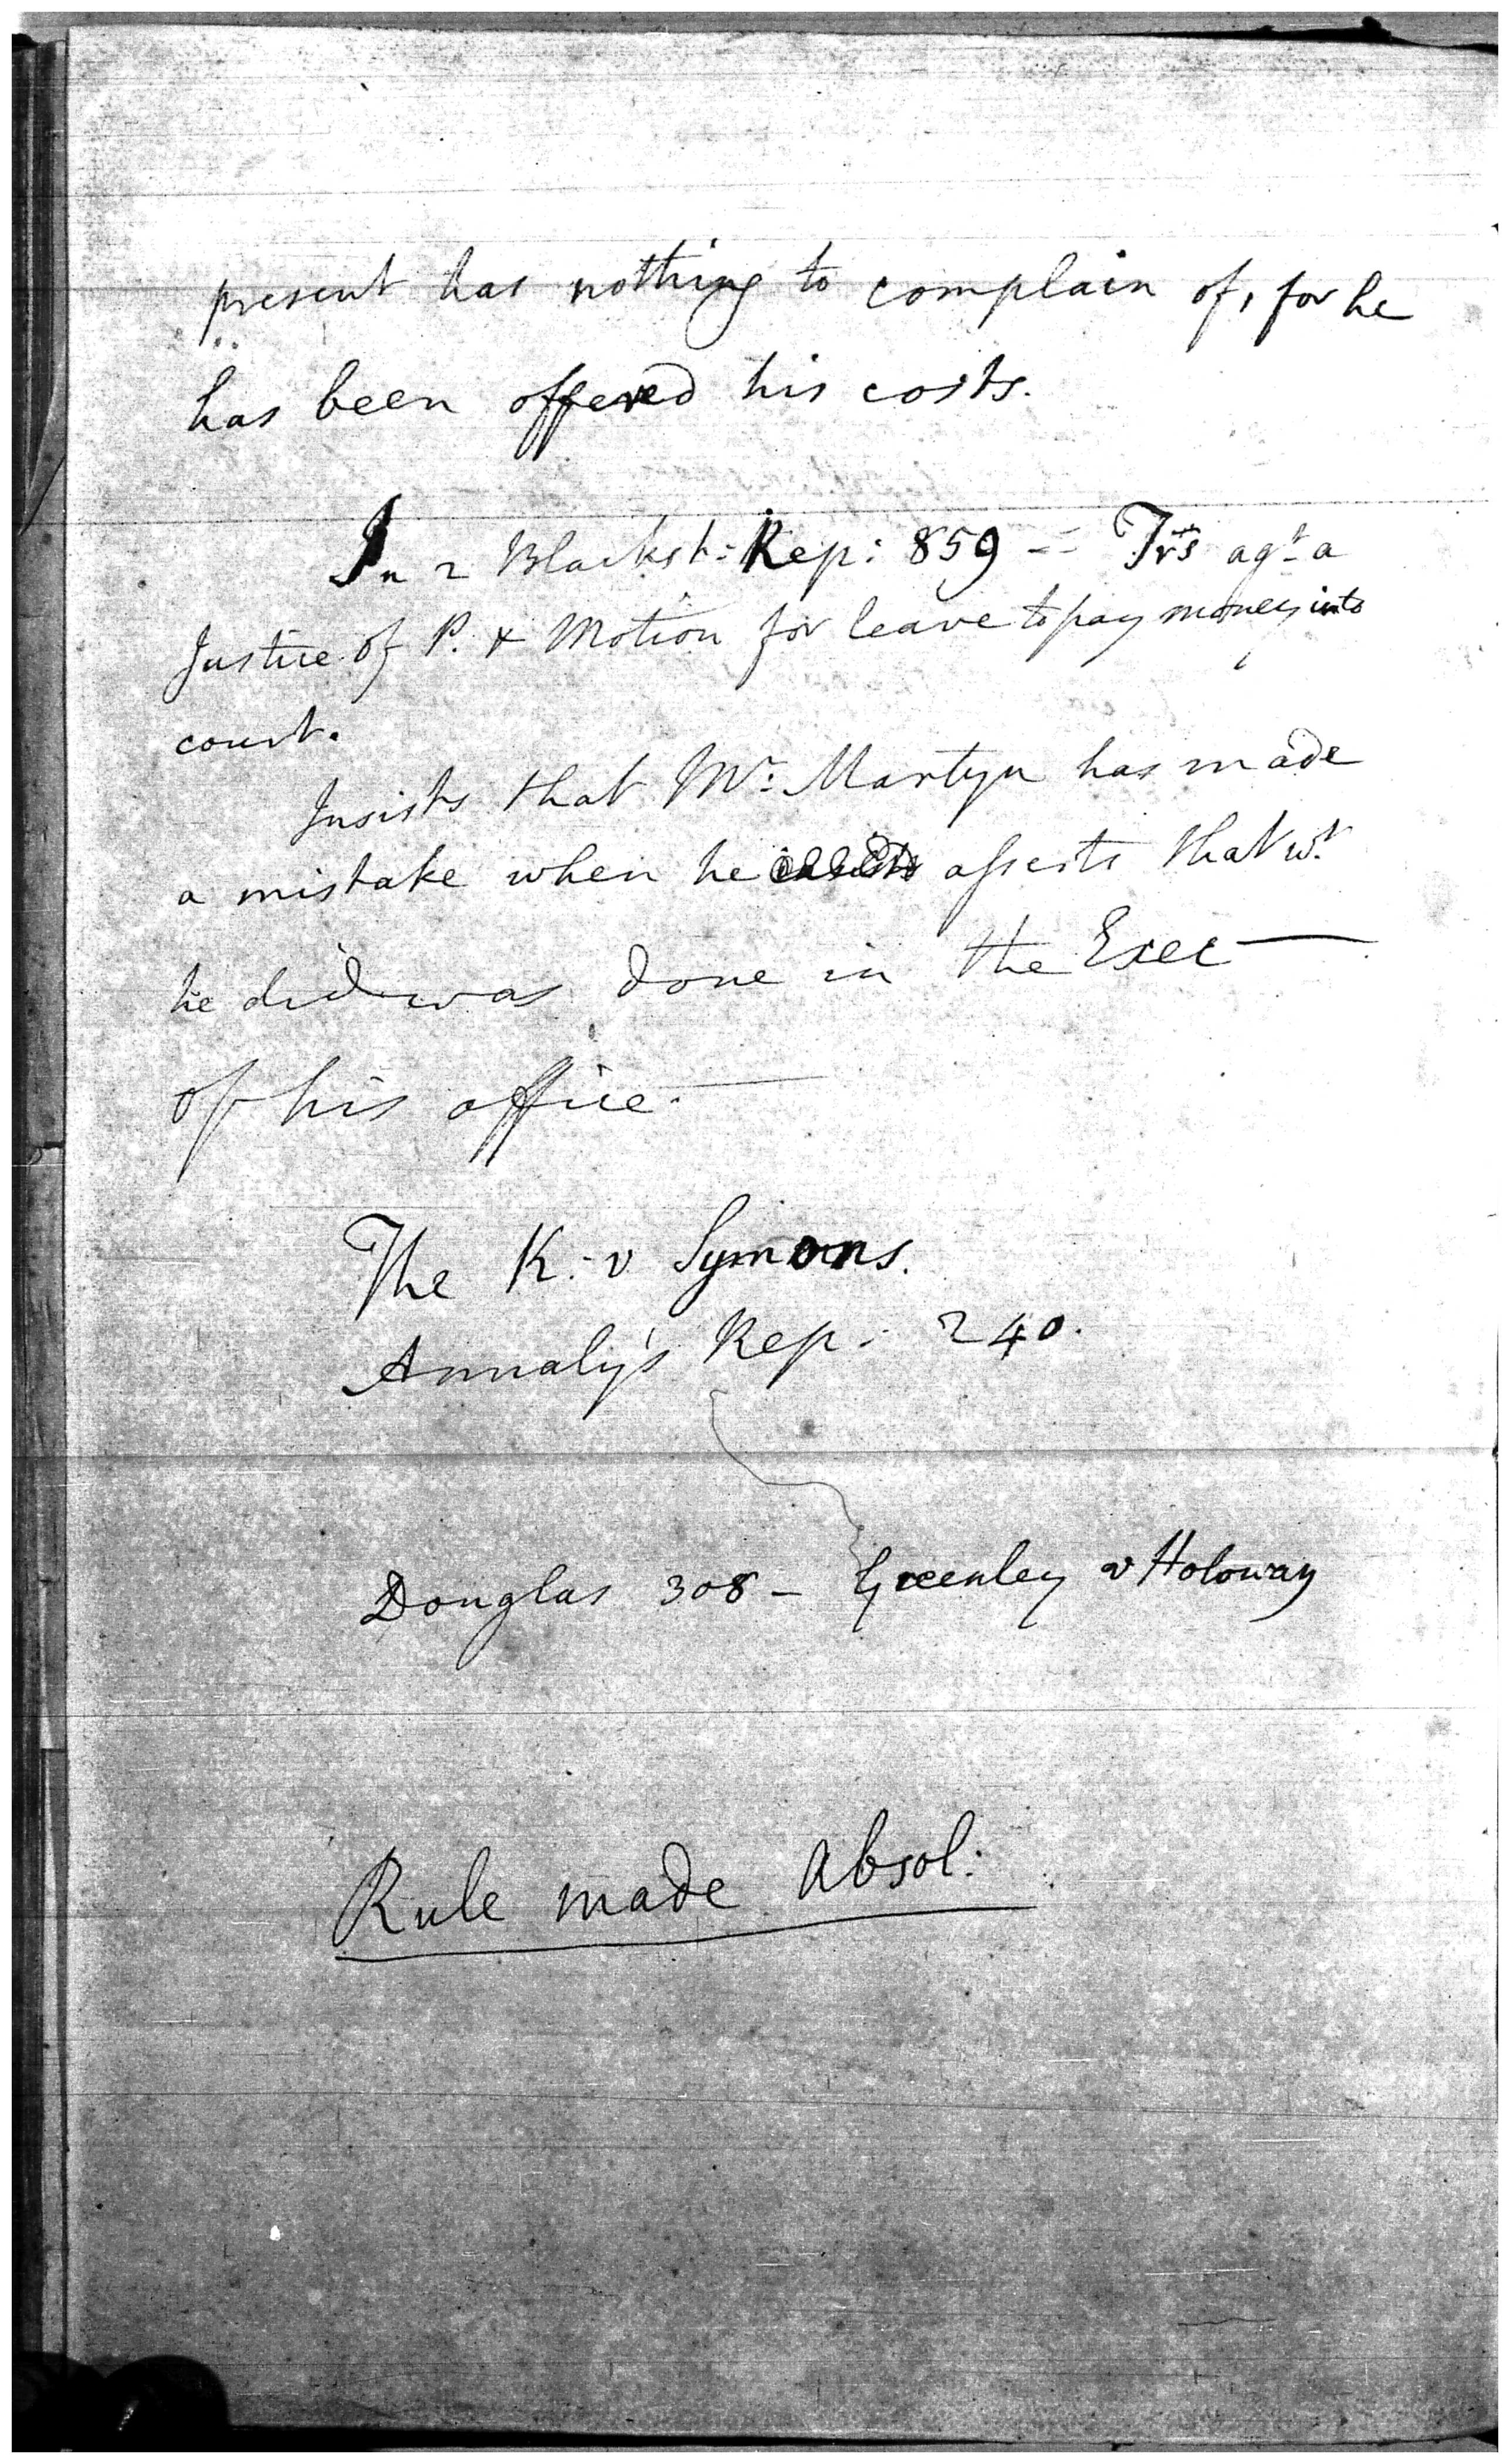 present has nothing to complain of, for he
has been offered his costs.
In 2 Blackst: Rep: 859 -- Trs agt a
Justice of P. & Motion for leave to pay money into
court.
Insists that Mr: Martyn has made
a mistake when he asserts that wt
he did was done in the Exec—
of his office.—
The K: v Symons.
Annaly's Rep: 240.
Douglas 308 – Greenley v Holoway
Rule made Absol: